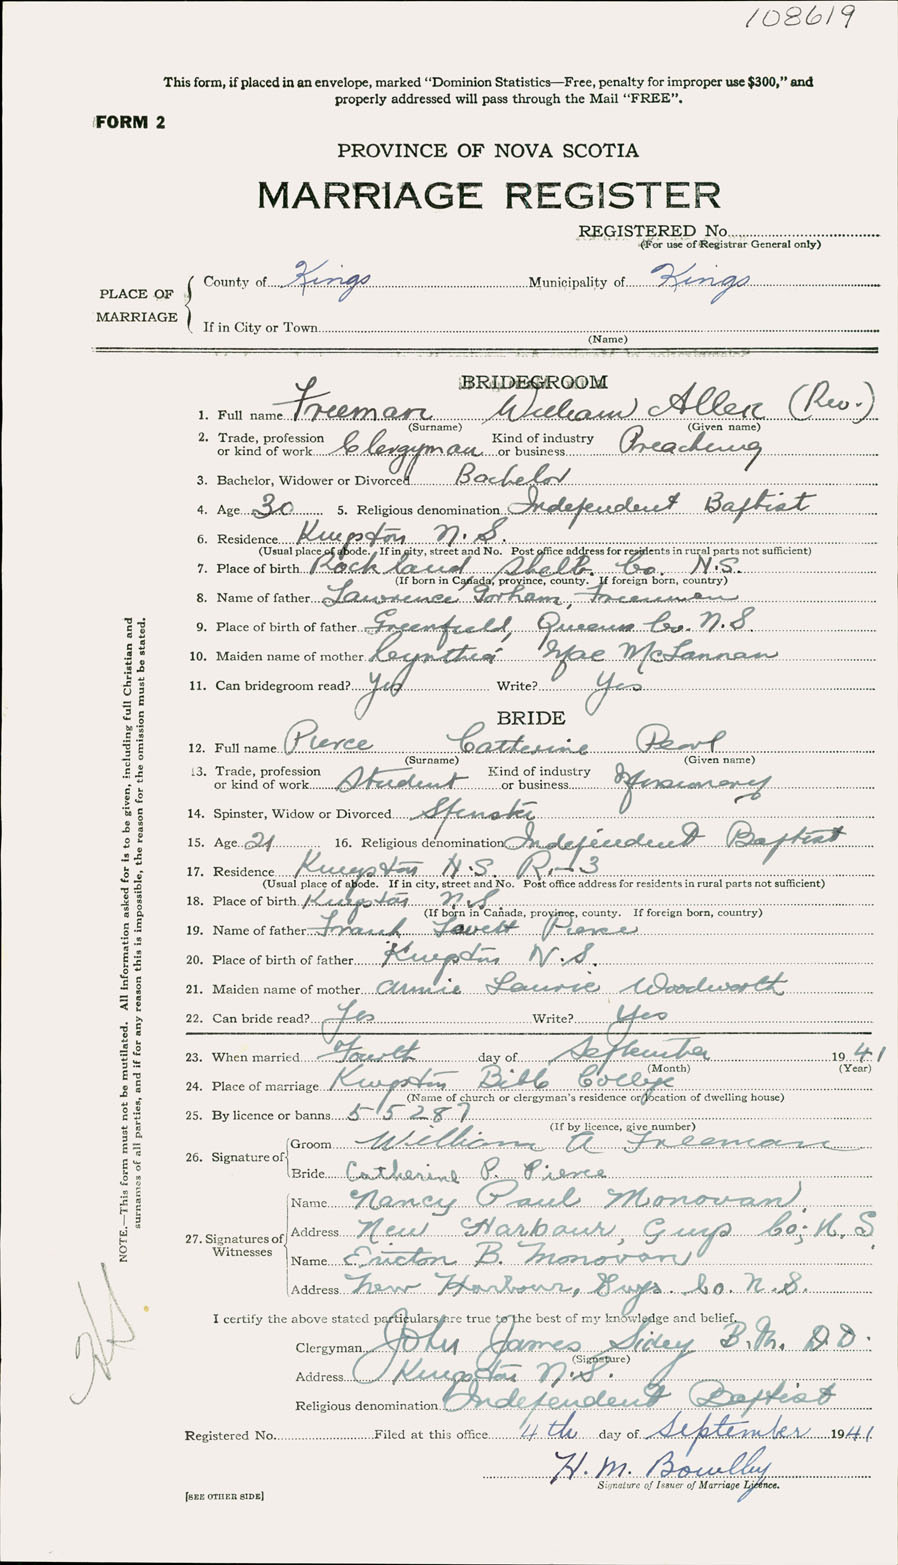 108619
This form, if placed in an envelope, marked "Dominion Statistics—Free, penalty for improper use $300," and
properly addressed will pass through the Mail "FREE".
FORM 2
PROVINCE OF NOVA SCOTIA
MARRIAGE REGISTER
REGISTERED No.
(For use of Registrar General only)
PLACE OF MARRIAGE
County of Kings Municipality of Kings
If in City or Town
(Name)
BRIDEGROOM
1. Full name Freeman William Allen (Rev.)
(Surname) (Given name)
2. Trade, profession or kind of work Clergyman Kind of industry or business Preaching
3. Bachelor, Widower or Divorced Bachelor
4. Age 30 5. Religious denomination Independent Baptist
6. Residence Kingston N.S.
(Usual place of abode. If in city, street and No. Post office address for residents in rural parts not sufficient)
7. Place of birth Rockland Shelb. Co. N.S.
(If born in Canada, province, county. If foreign born, country)
8. Name of father Lawrence Gorham, Freeman
9. Place of birth of father Greenfield, Queens Co. N.S.
10. Maiden name of mother Cynthia Mae McLannan
11. Can bridegroom read? Yes Write? Yes
BRIDE
12. Full name Pierce Catherine Pearl
(Surname) (Given name)
13. Trade, profession or kind of work Student Kind of industry or business
14. Spinster, Widow or Divorced Spinster
15. Age 21 16. Religious denomination Independent Baptist
17. Residence Kingston N.S. R.-3
(Usual place of abode. If in city, street and No. Post office address for residents in rural parts not sufficient)
18. Place of birth Kingston N.S.
(If born in Canada, province, county. If foreign born, country)
19. Name of father Frank Lovett Pierce
20. Place of birth of father Kingston N.S.
21. Maiden name of mother Annie Laurie Woodworth
22. Can bride read? Yes Write? Yes
23. When married Fourth day of September 1941
(Month) (Year)
24. Place of marriage Kingston Bible College
(Name of church or clergyman's residence or location of dwelling house)
25. By licence or banns 55287
(If by licence, give number)
26. Signature of
Groom William A Freeman
Bride Catherine P. Pierce
27. Signatures of Witnesses
Name Nancy Paul Monovan
Address New Harbour, Guys Co; N.S
Name B. Monovan
Address New Harbour, Guys. Co. N.S.
I certify the above stated particulars are true to the best of my knowledge and belief.
Clergyman John James Sidey B.Th. D.D.
(Signature)
Address Kingston N.S.
Religious denomination Independent Baptist
Registered No. Filed at this office 4th day of September 1941
H. M. Bowlby
Signature of Issuer of Marriage Licence.
[SEE OTHER SIDE]
NOTE.—This form must not be mutilated. All Information asked for is to be given, including full Christian and
surnames of all parties, and if for any reason this is impossible, the reason for the omission must be stated.